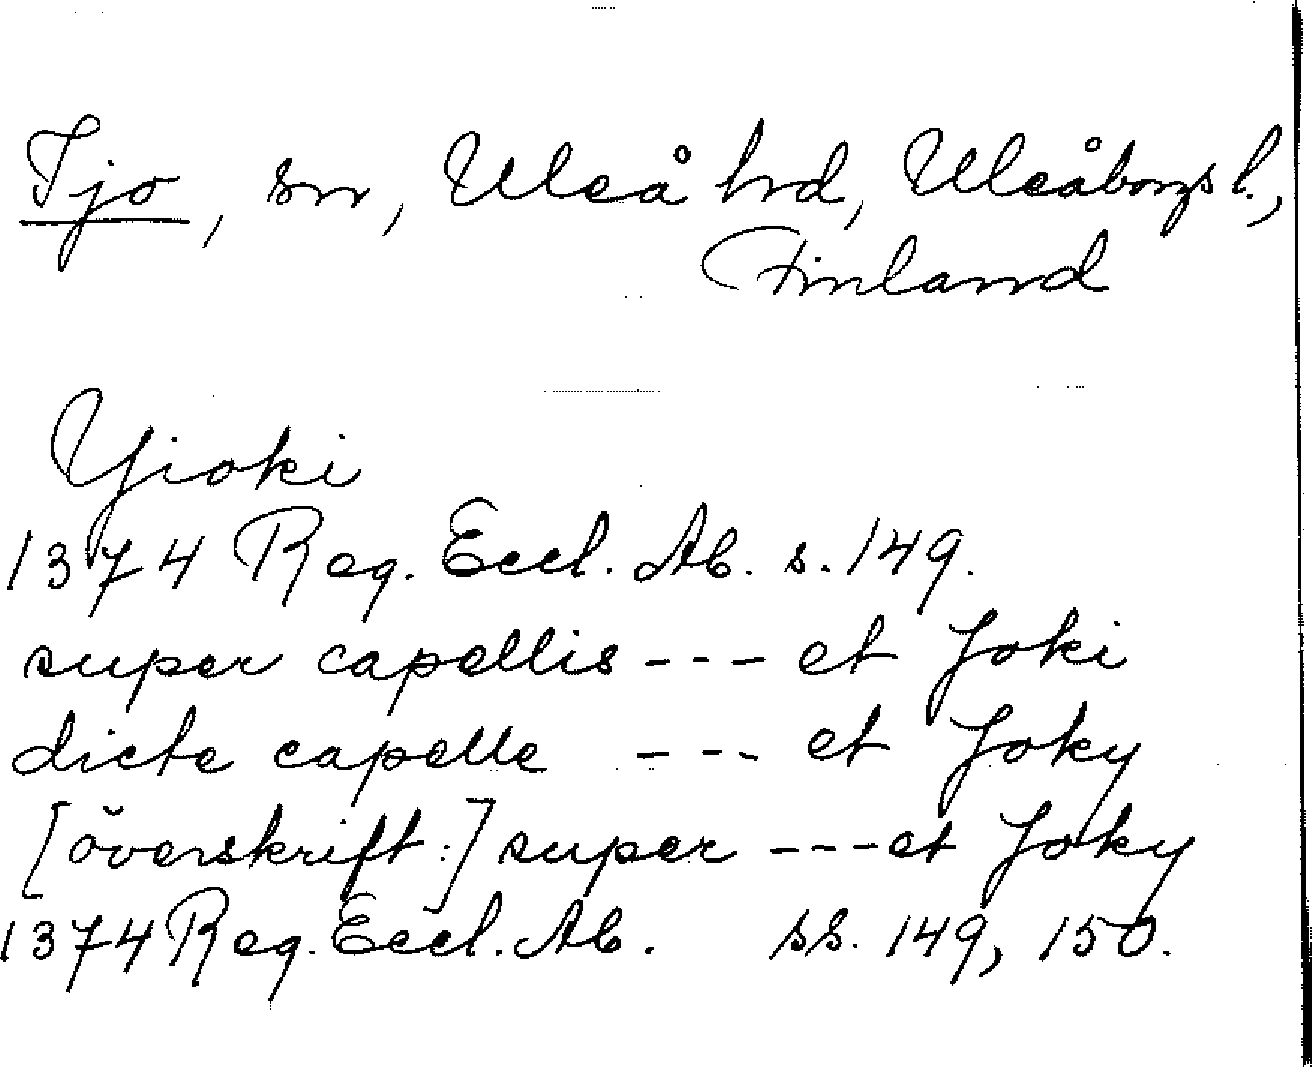 Ijo, sn, Uleå hd, Uleåborgs l.,
Finland
Yjoki
1374 Reg. Eccl. Ab. s. 149.
super capellis --- et Joki
dicte capelle --- et Joky
[överskrift:] super --- et Joky
1374 Reg. Eccl. Ab. ss. 149, 150.